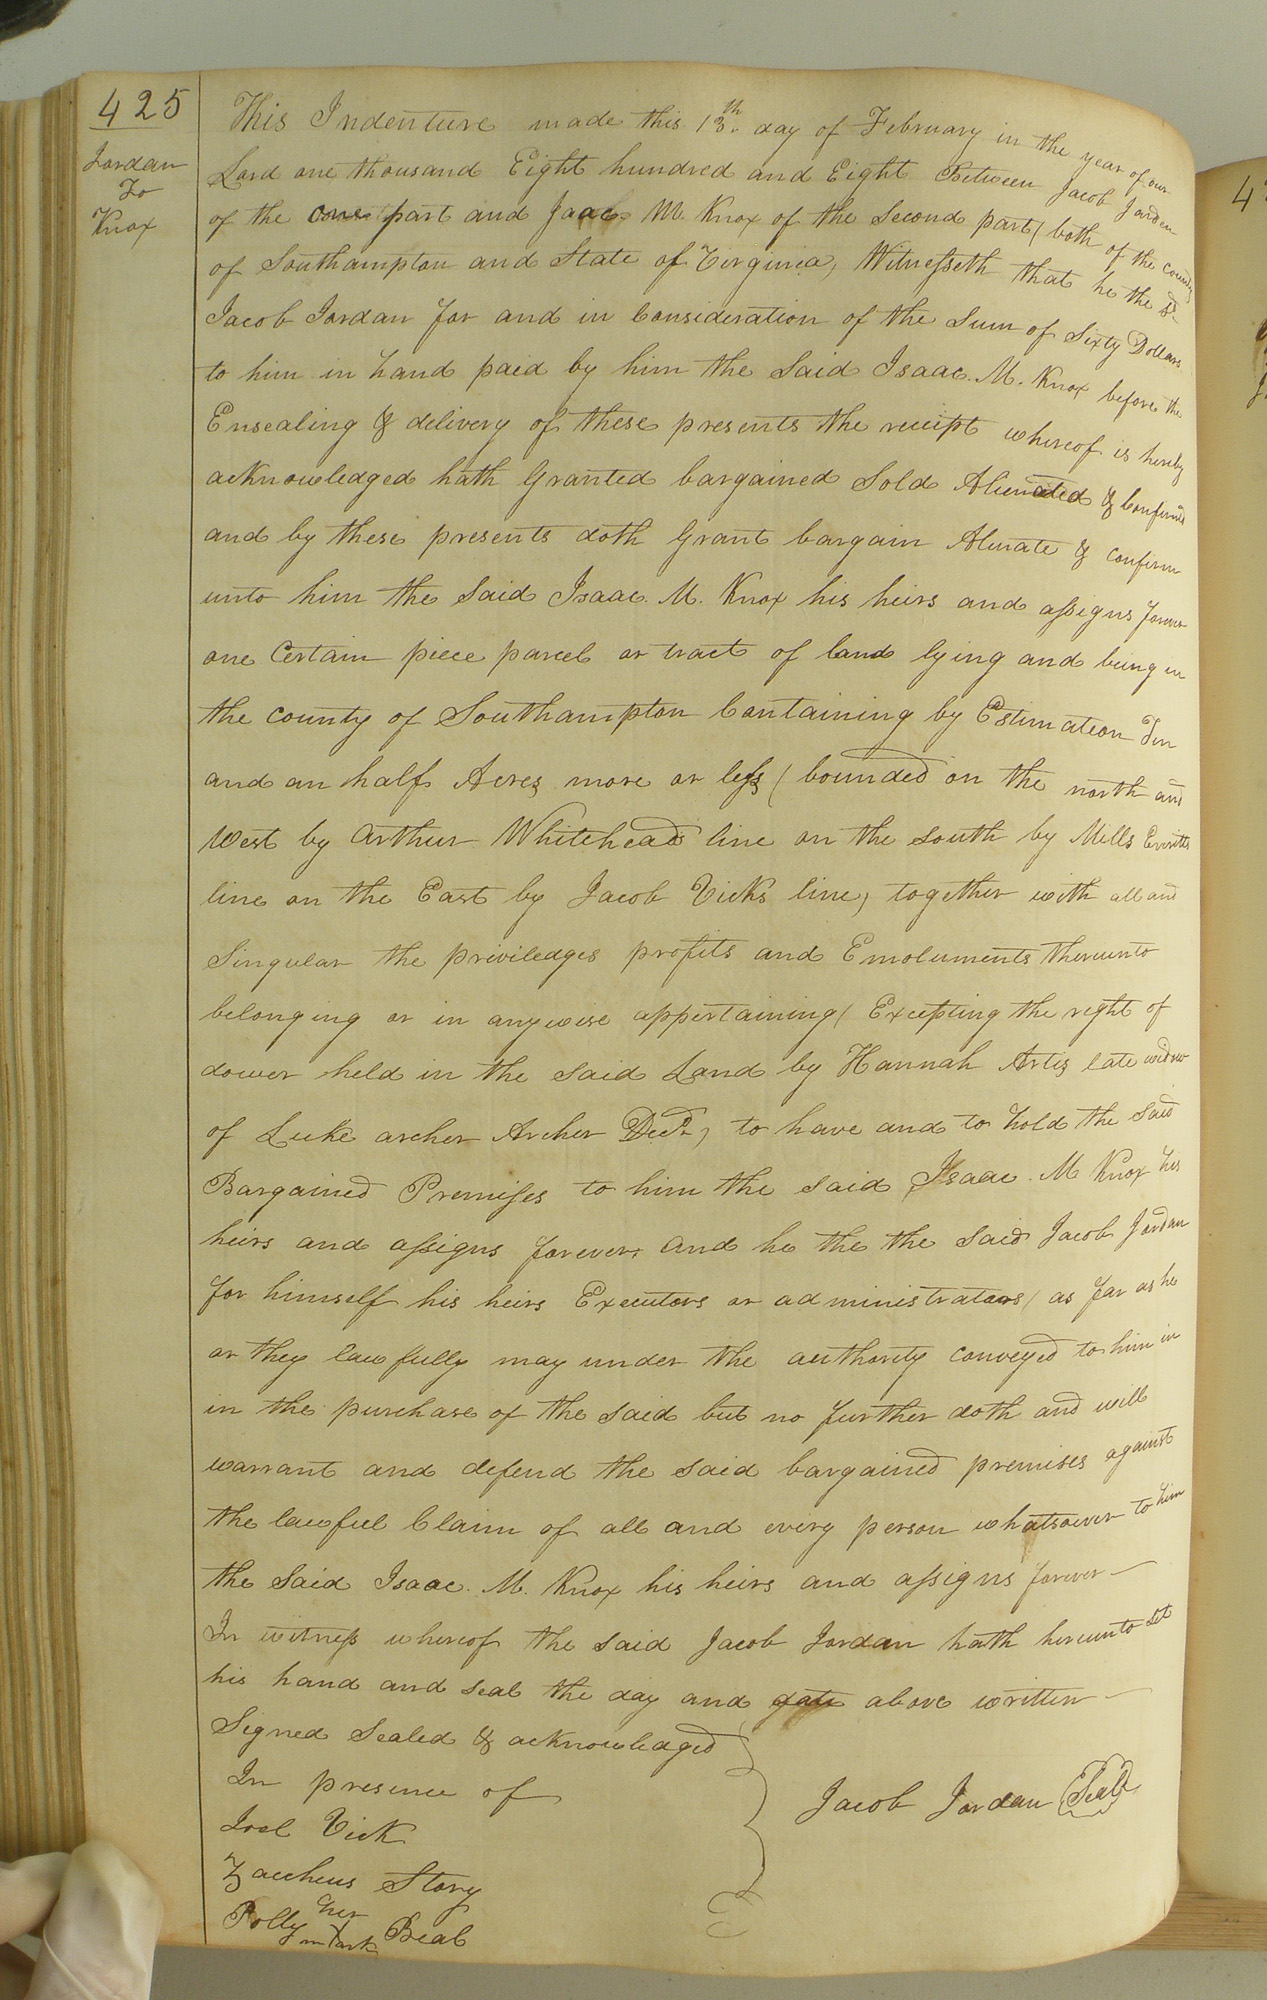 425
Jordan
To
Knox
This Indenture made this 13th day of February in the year of our
Lord one thousand Eight hundred and Eight Between Jacob Jorden
of the one part and Jaac M Knox of the Second part ( both of the county
of Southampton and State of Virginia, Witnesseth that he the sd
Jacob Jordan for and in Consideration of the Sum of Sixty Dollars
to him in hand paid by him the Said Isaac M. Knox before the
Ensealing & delivery of these presents the receipt whereof is hereby
acknowledged hath Granted bargained Sold Alienated & Confirmed
and by these presents doth Grant bargain Alienate & confirm
unto him the Said Isaac. M. Knox his heirs and assigns forever
one Certain piece parcel or tract of land lying and being in
the county of Southampton Containing by Estimation Ten
and an half Acres more or less ( bounded on the north and
West by Arthur Whitehead line on the south by Mills Everitts
line on the East by Jacob Vicks line, together with all and
Singular the priviledges profits and Emoluments thereunto
belonging or in anywise appertaining ( Excepting the right of
dower held in the said Land by Hannah Artis late widow
of Luke archer Archer Decd, to have and to hold the said
Bargained Premises to him the said Isaac. M Knox his
heirs and assigns forever. and he the the said Jacob Jordan
for himself his heirs Executors or administrators ( as far as he
or they lawfully may under the authority conveyed to him in
in the purchase of the said but no further doth and will
warrant and defend the said bargained premises against
the lawful Claim of all and every person whatsoever to him
the Said Isaac. M. Knox his heirs and assigns forever
In witness whereof the said Jacob Jordan hath hereunto set
his hand and seal the day and date above written
Signed Sealed & acknowledged
In presence of
Joel Vick
Zaccheus Story
her
Polly X Beal
mark
Jacob Jordan Seal